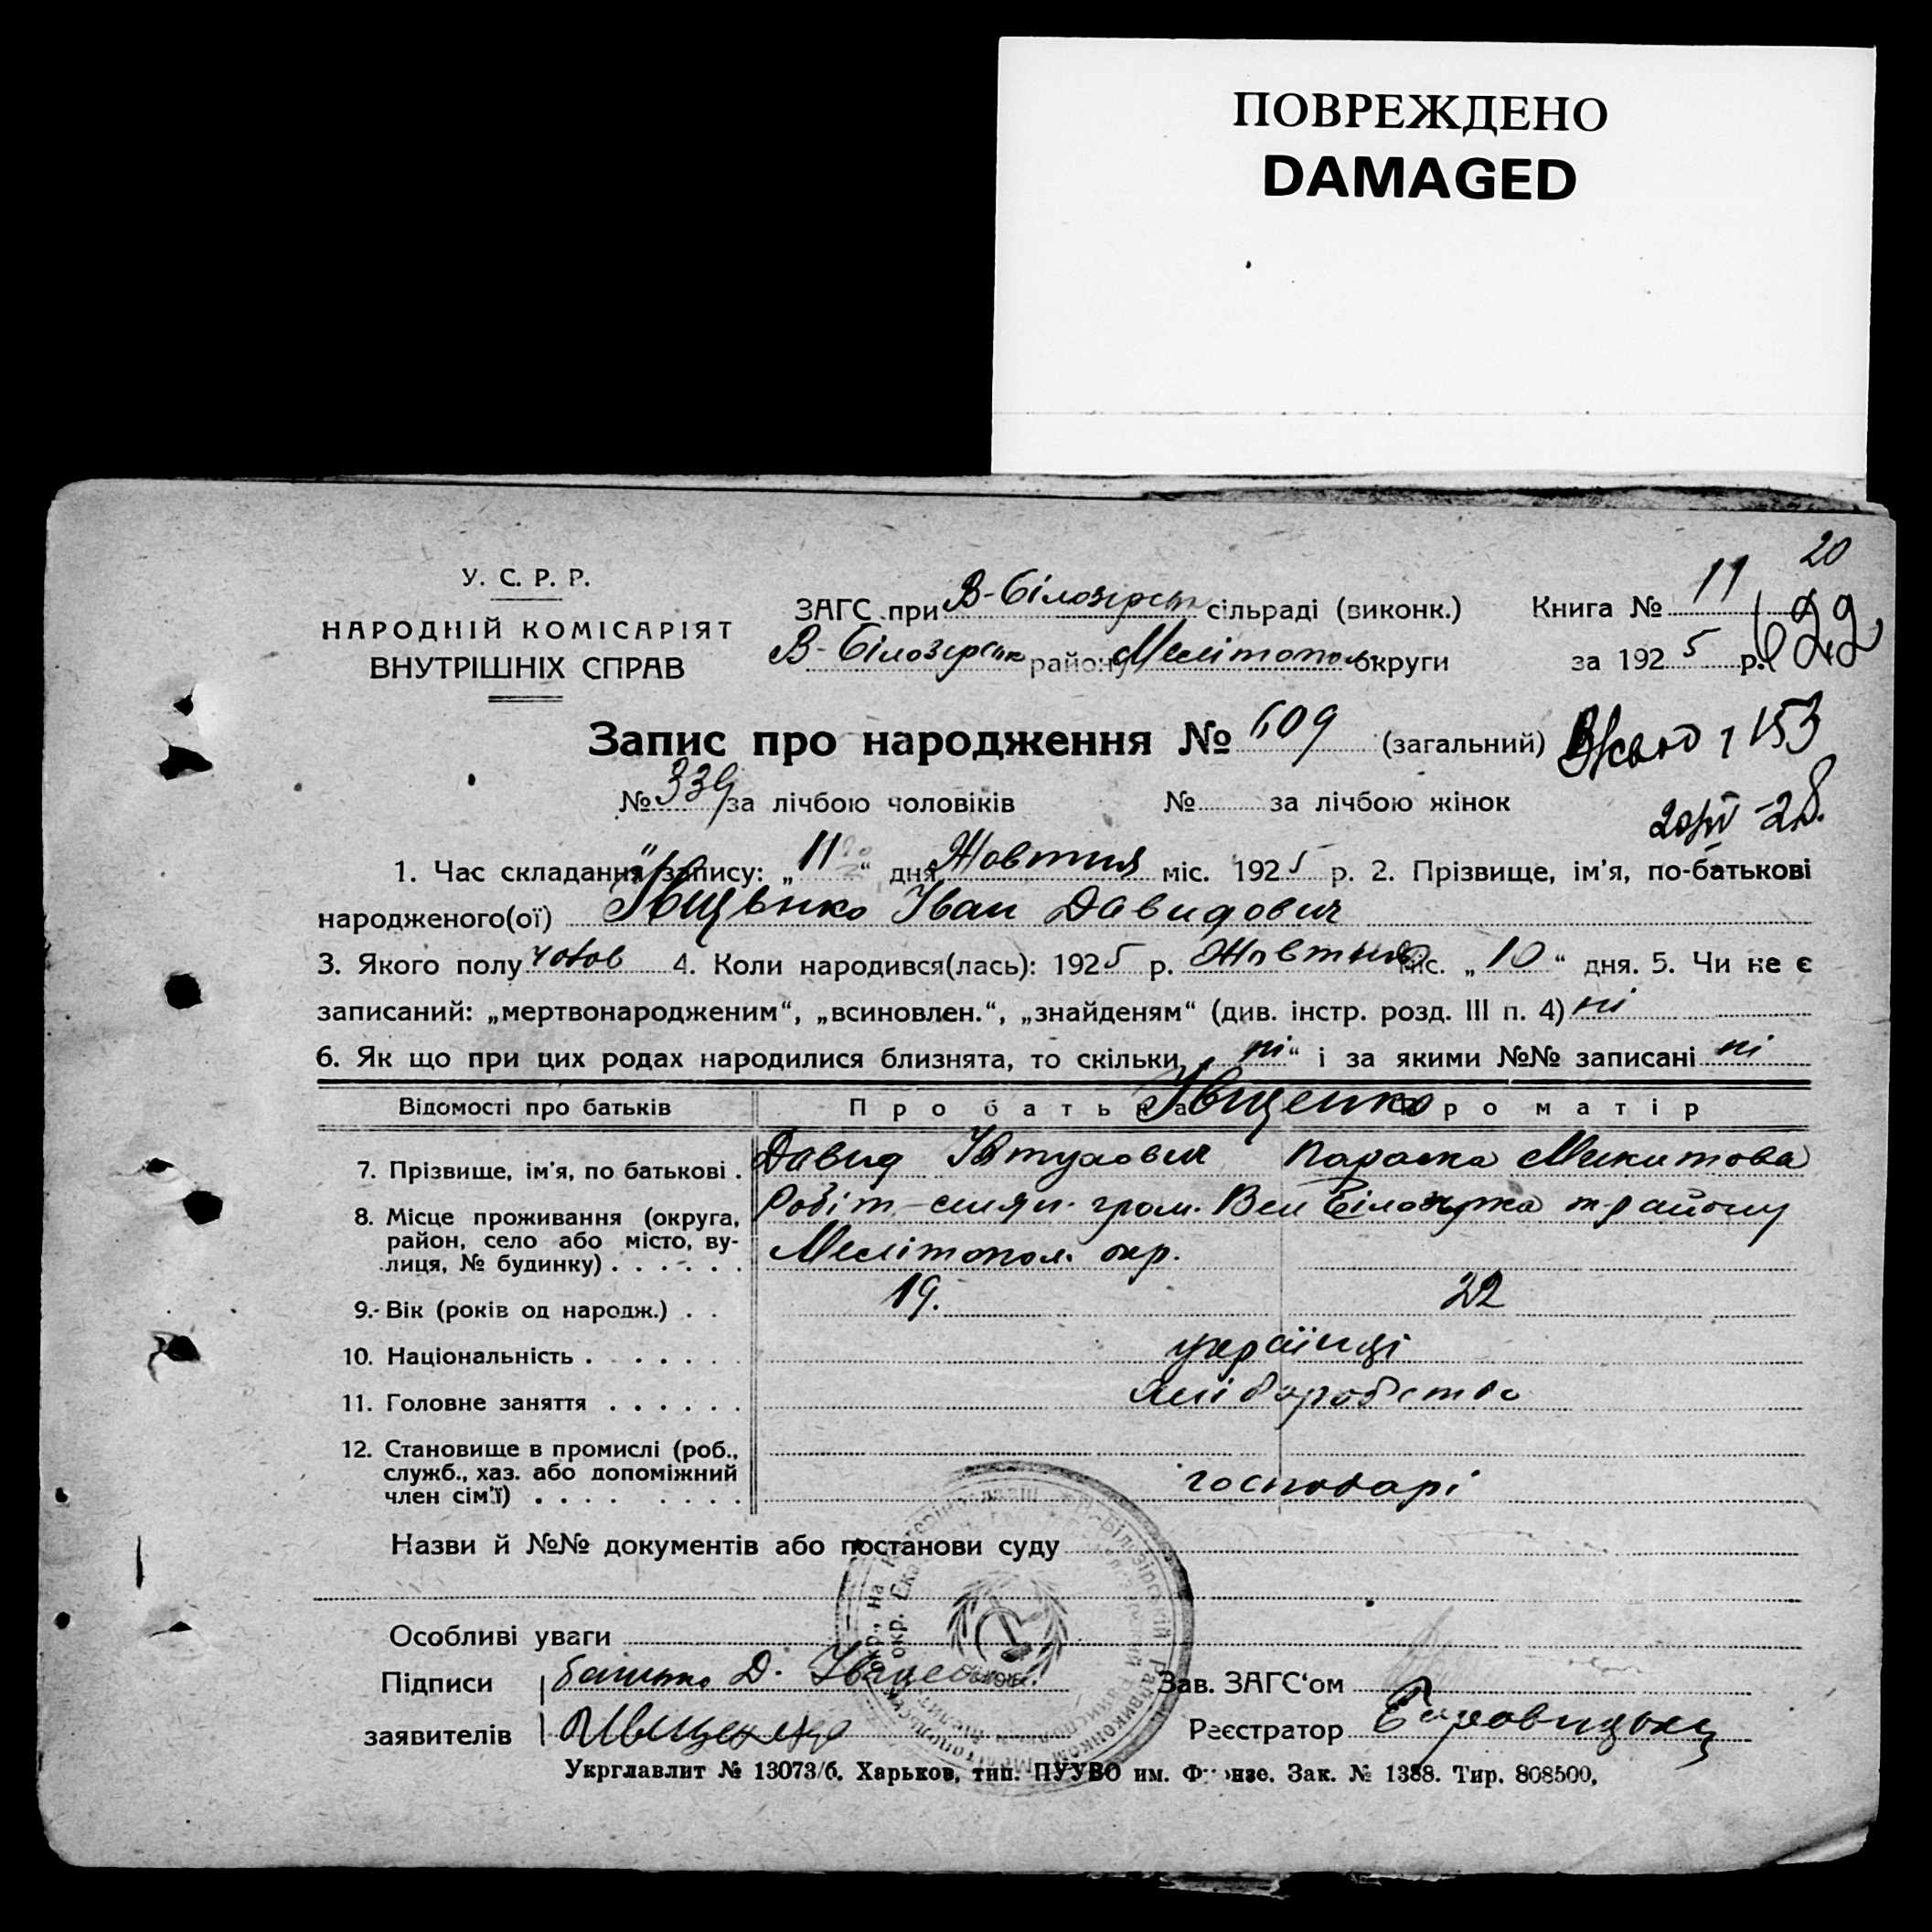 ПОВРЕЖДЕНО
DAMAGED
20
У. С. Р. Р.
НАРОДНІЙ КОМІСАРІЯТ
ВНУТРІШНІХ СПРАВ
ЗАГС при В-Білозірськ сільраді (виконк.) Книга № 11
В-Білозірськ району Мелітопол округи за 1925 р. 622
Запис про народження № 609 (загальний) 153
№ 339 за лічбою чоловіків № за лічбою жінок
28.
1. Час складання запису: „11“ дня Жовтня міс. 1925 р. 2. Прізвище, ім'я, по-батькові
народженого(ої) Івщенко Іван Давидович
3. Якого полу чолов 4. Коли народився(лась): 1925 р. Жовтня міс. „10“ дня. 5. Чи не є
записаний: „мертвонародженим“, „всиновлен.“, „знайденям“ (див. інстр. розд. III п. 4) ні
6. Як що при цих родах народилися близнята, то скільки „ні“ і за якими №№ записані ні
Відомості про батьків Про батька Про матір
Івщенко
7. Прізвище, ім'я, по батькові . Давид Явтухович Параска Микитова
8. Місце проживання (округа, район, село або місто, вулиця, № будинку) . . . . . . Робіт-селян. гром. Вел Білозірка т-району
Мелітопол. окр.
9. Вік (років од народж.) . . 19. 22
10. Національність . . . . . . українці
11. Головне заняття . . . . . . хліборобство
12. Становище в промислі (роб., служб., хаз. або допоміжний член сім'ї) . . . . . . . . господарі
Назви й №№ документів або постанови суду
Особливі уваги
Підписи батько Д. Івщенко Зав. ЗАГС‘ом
заявителів Реєстратор
Укрглавлит № 13073/б. Харьков, тип. ПУУВО им. Фрунзе. Зак. № 1388. Тир. 808500.